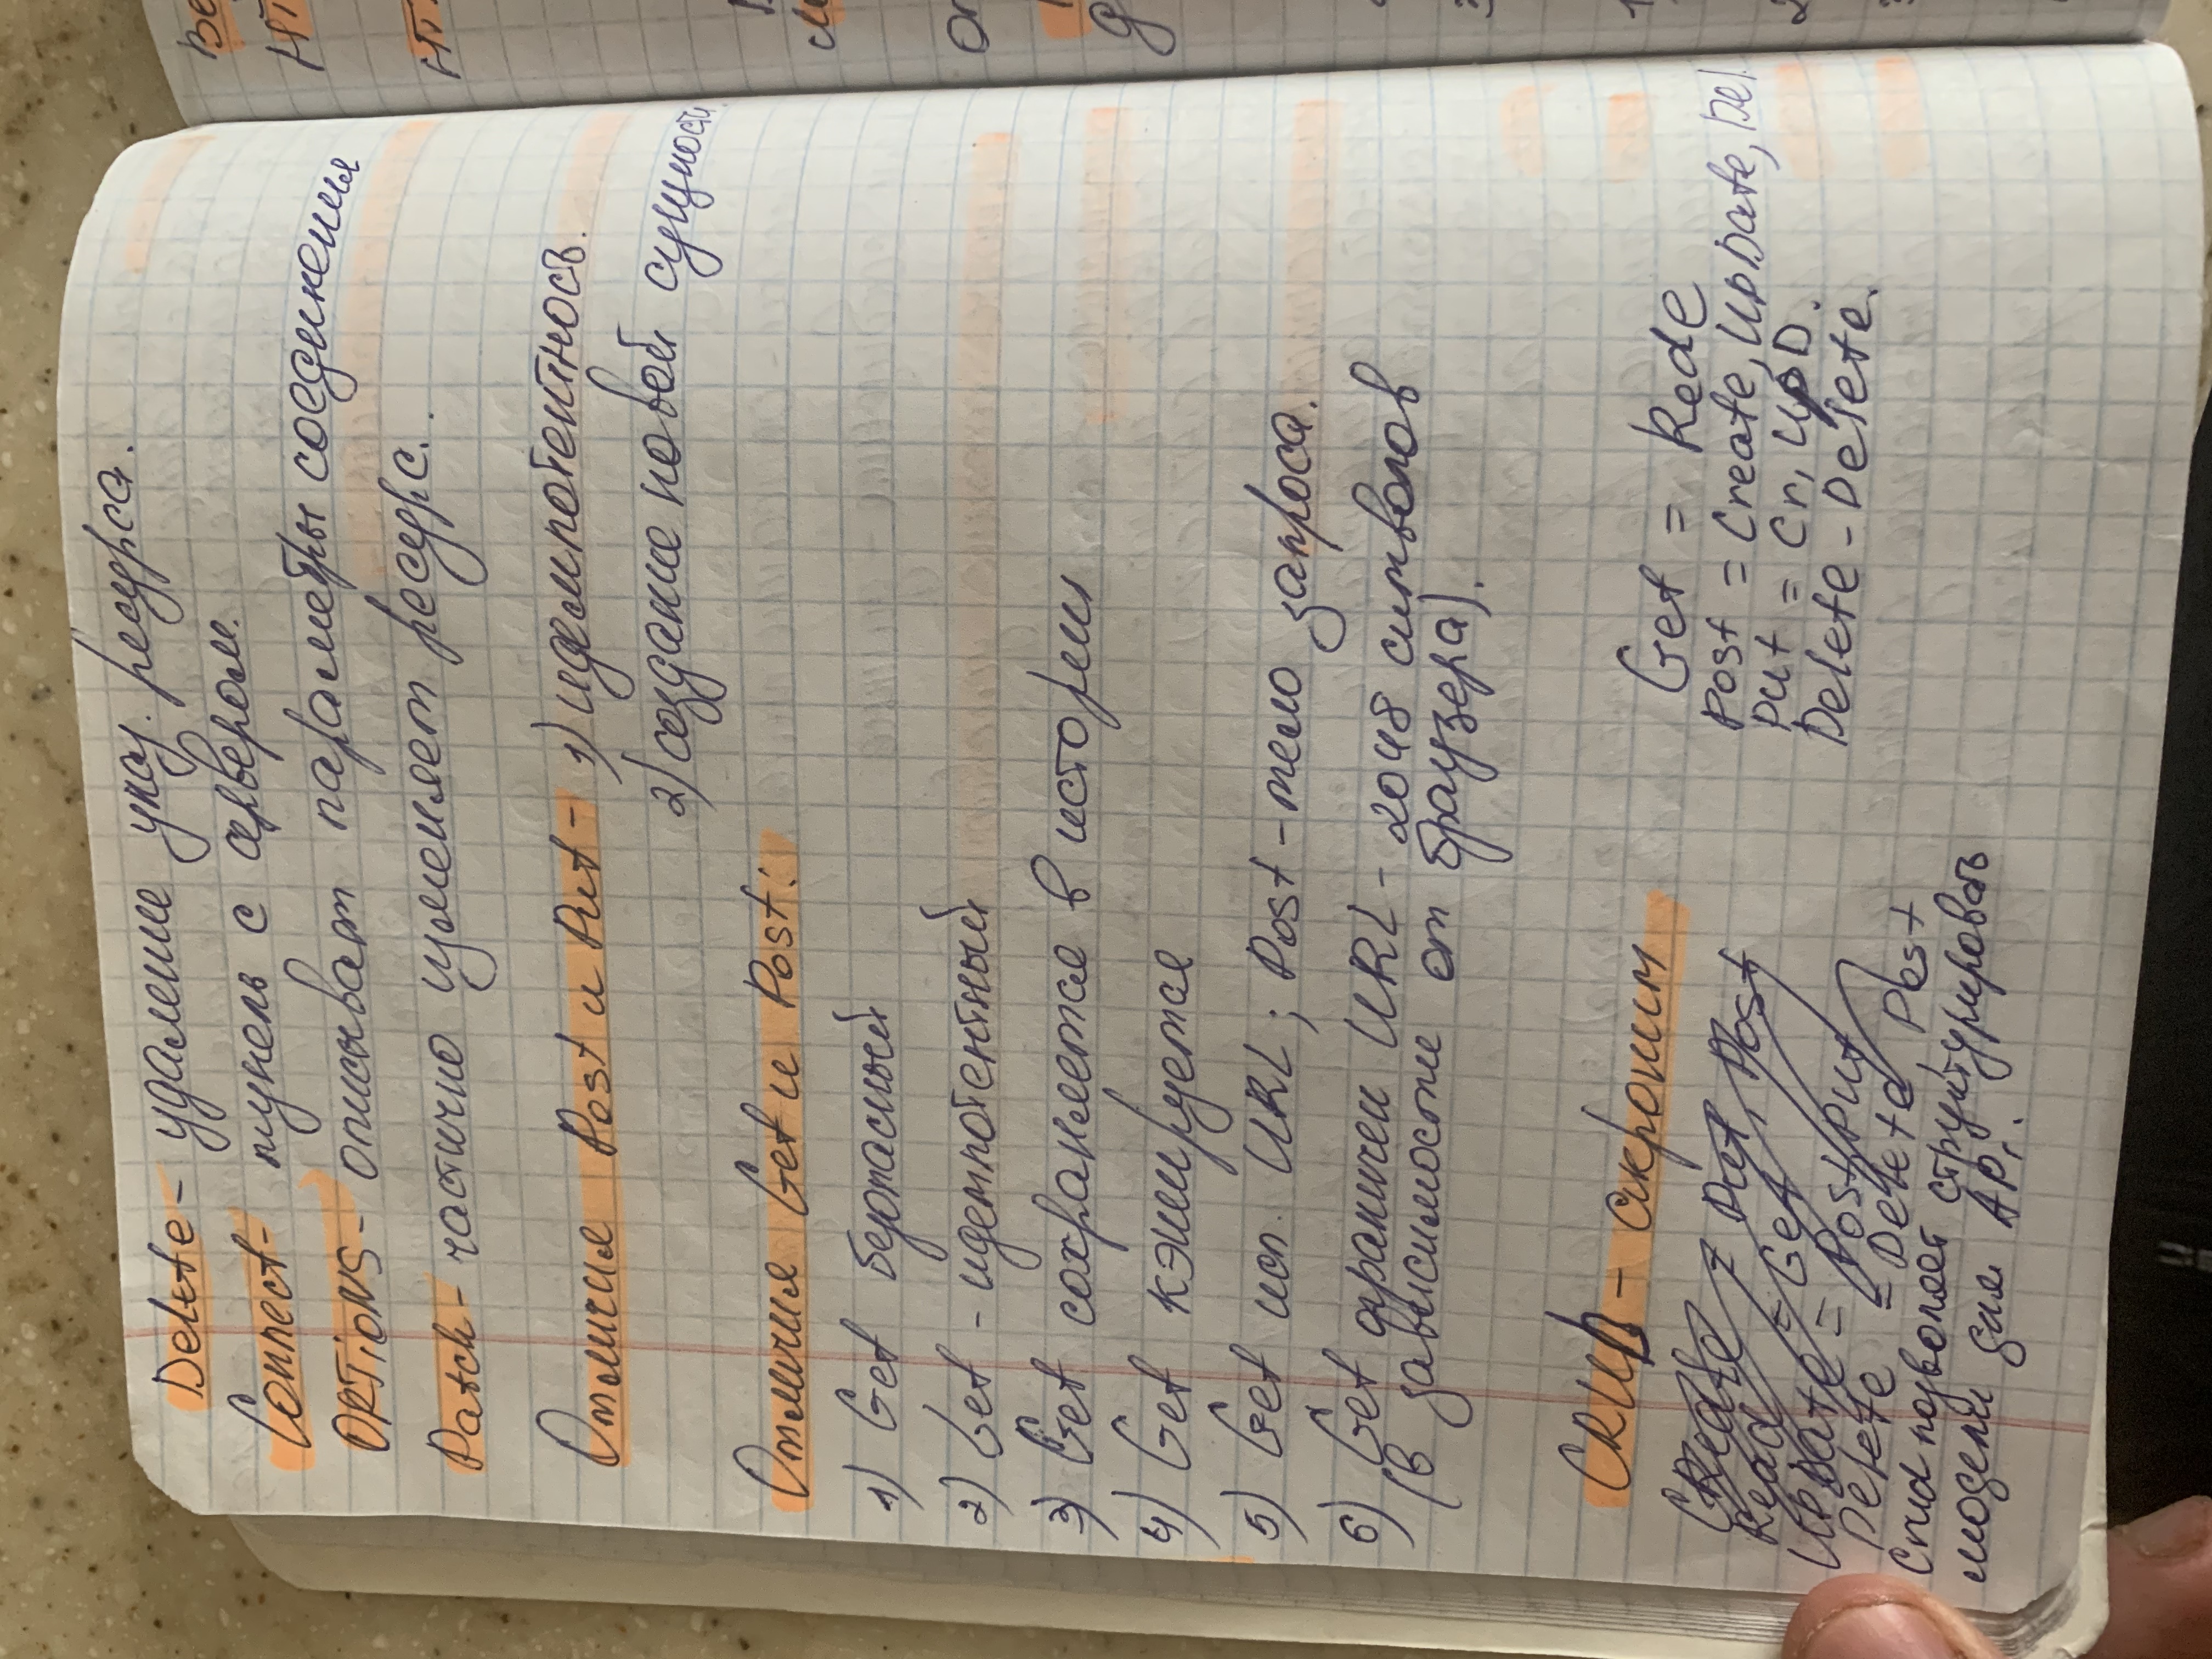 Delete - удаление указ. ресурса.
Connect - тунель с сервером.
OPTiONS - описывает параметры соединения
Patch - частично изменяет ресурс.
Отличия Post и Put - 1) идемпотентность.
2) создание новой сущности.
Отличия Get и Post:
1) Get безопасный
2) Get - идемпотентный
3) Get сохраняется в истории
4) Get кэшируется
5) Get исп. URL; Post - тело запроса.
6) Get ограничен URL - 2048 символов
(в зависимости от браузера).
CRUD - акроним
Create = Put, Post
Read = Get
UPDate = Post, Put
Delete = Delete, Post
Crud позволяет структурировать
модели для APi.
Get = Rede
Post = Create, UpDate, Del.
Put = Cr, UpD.
Delete - Delete.
Ве
HT
HT